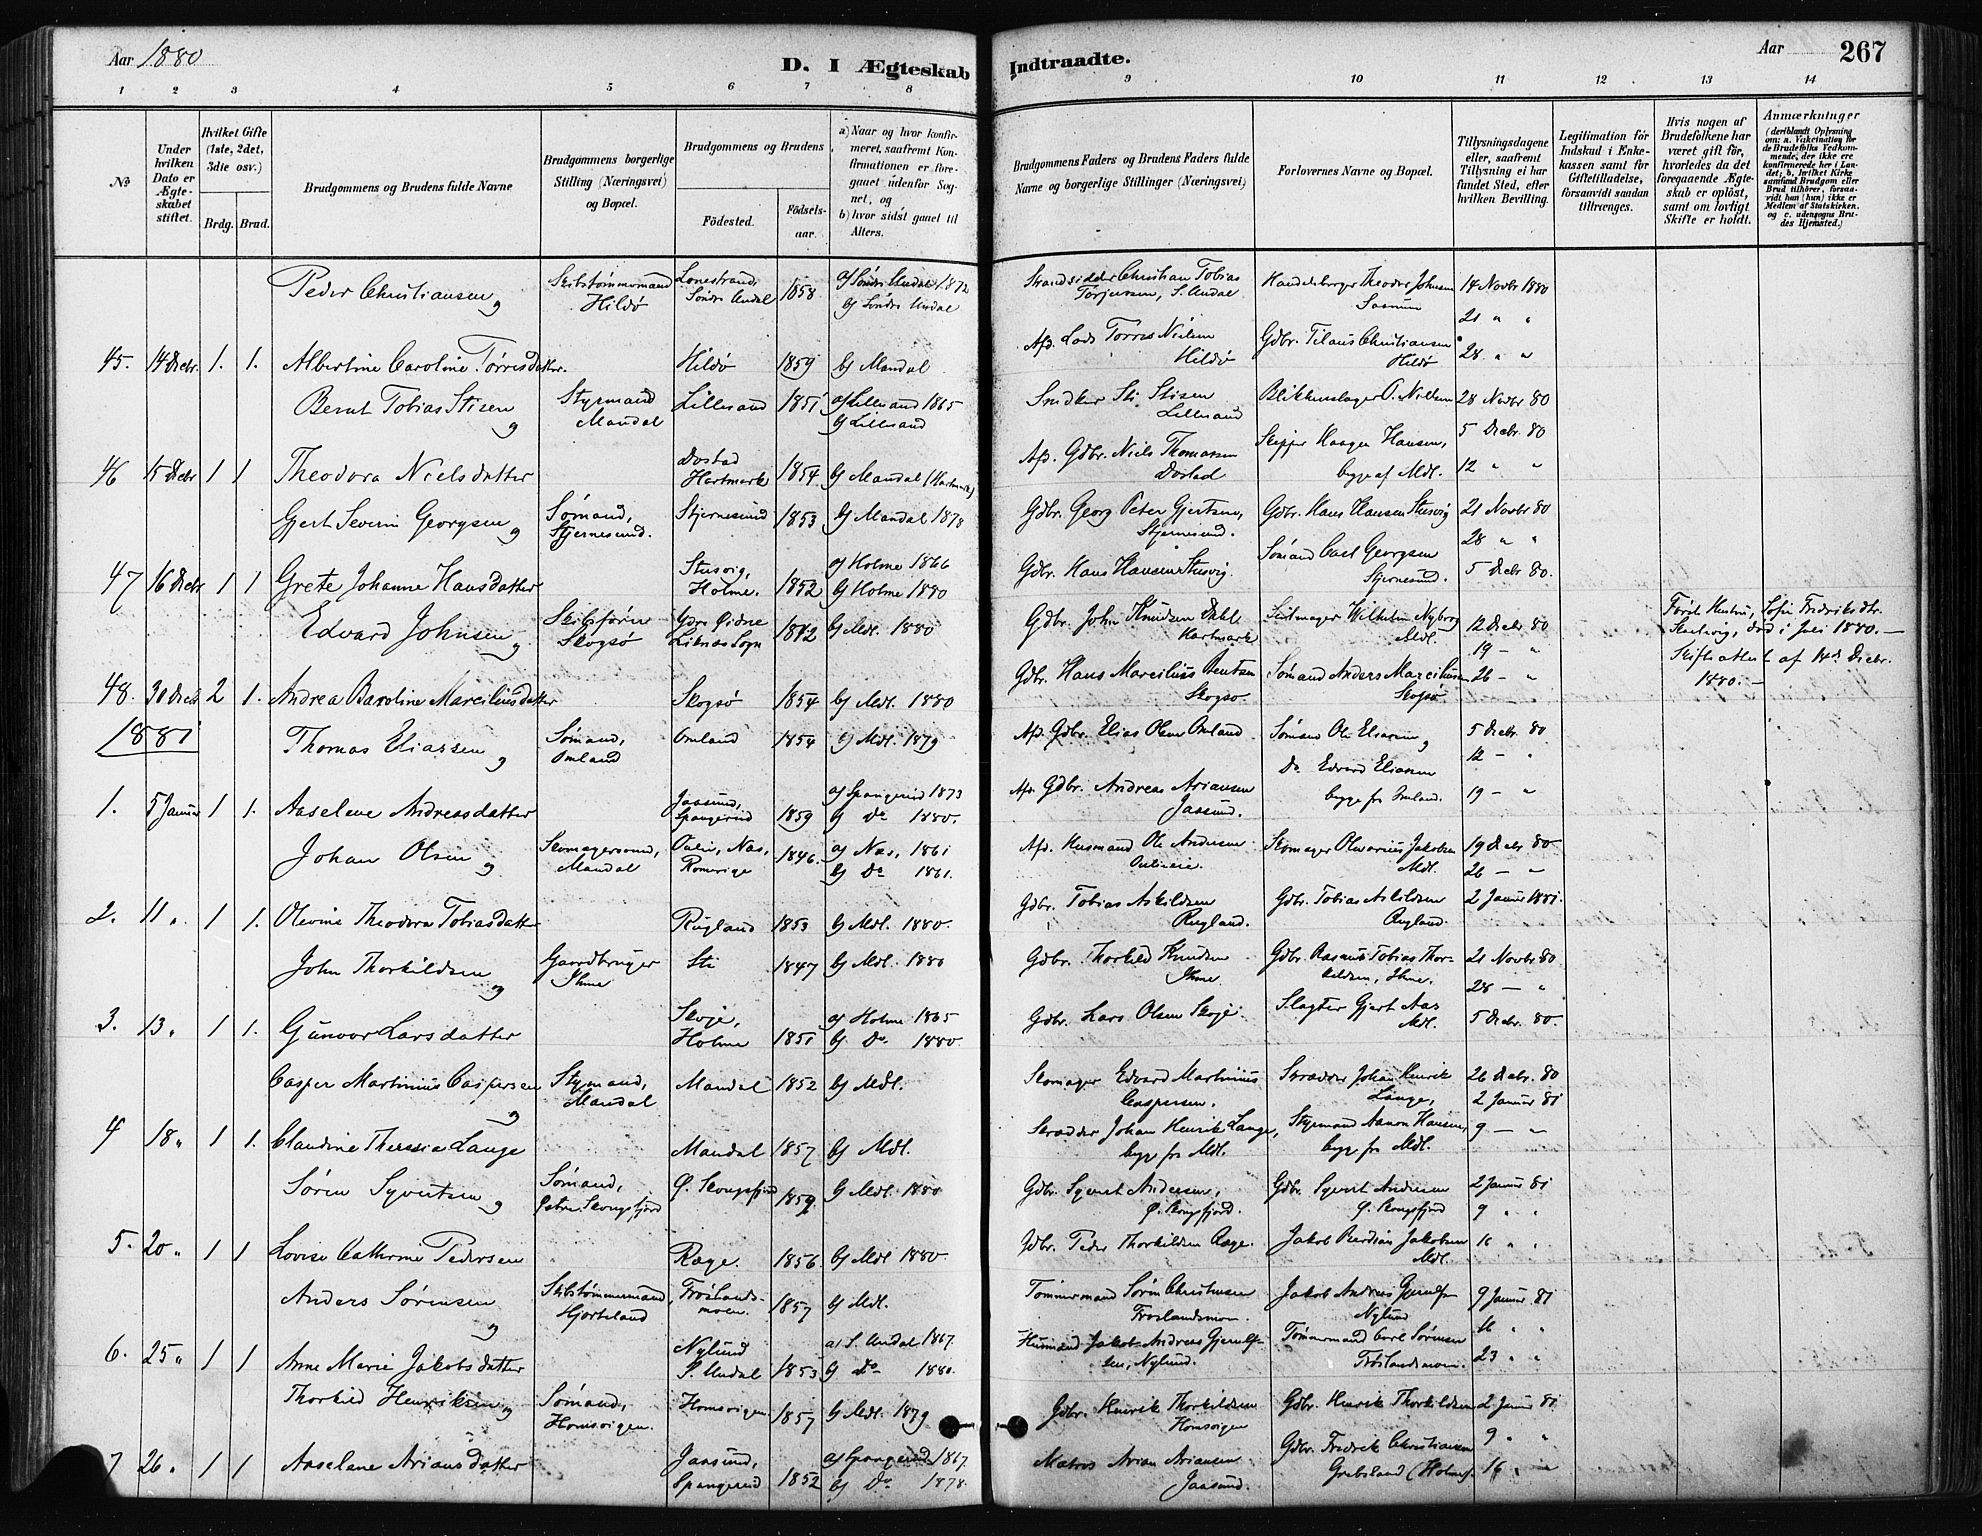 Aar 1880
D. I Ægteskab Indtraadte.
Aar
267
1 2 3 4 5 6 7 8 9 10 11 12 13 14
No
Under hvilken Dato er Ægteskabet stiftet.
Hvilket Gifte (1ste, 2det, 3die osv.)
Brdg. Brud.
Brudgommens og Brudens fulde Navne
Brudgommens borgerlige Stilling (Næringsvei) og Bopæl.
Brudgommens og Brudens
Födested.
Födselsaar.
a) Naar og hvor konfirmeret, saafremt Konfirmationen er foregaaet udenfor Sognet, og
b) hvor sidst gaaet til Alters.
Brudgommens Faders og Brudens Faders fulde Navne og borgerlige Stillinger (Næringsvei)
Forlovernes Navne og Bopæl.
Tillysningsdagene eller, saafremt Tillysning ei har fundet Sted, efter hvilken Bevilling.
Legitimation för Indskud i Enkekassen samt för Giftetilladelse, forsaavidt saadan tiltrænges.
Hvis nogen af Brudefolkene har været gift för, hvorledes da det foregaaende Ægteskab er oplöst, samt om lovligt Skifte er holdt.
Anmærkninger
(deriblandt Oplysning om: a. Vakcination for de Brudefolks Vedkommende, der ikke ere konfirmerede her i Landet; b. hvilket Kirkesamfund Brudgom eller Brud tilhörer, forsaavidt han (hun) ikke er Medlem af Statskirken. og c. udensogns Brudes Hjemsted.)
Peder Christiansen og Skibstømmermand Hildø Lonestrand, Søndr Undal 1858 a) Søndr Undal 1872 b) Søndr Undal Strandsidder Christian Tobias Torjussen, S. Undal Handelsborger Theodor Johnsen 14 Novbr 1880
21 " "
45. 14 Decbr. 1. 1. Albertine Caroline Tørresdatter. Hildø 1859 b) Mandal Afd. Lods Tørres Nielsen Hildø Gdbr. Tilaus Christiansen Hildø 28 " "
Bernt Tobias Stisen og Styrmand Mandal Lillesand 1851 a) Lillesand 1865 b) Lillesand Snedker Sti Stisen Lillesand Blikkenslager O. Nielsen 28 Novbr 80
5 Decbr. 80
46 15 Decbr 1 1 Theodora Nielsdatter Dostad Hartmark 1854 b) Mandal (Hartmark) Afd. Gdbr. Niels Thomassen Dostad Skipper Haagen Hansen, begge af Mdl. 12 " "
Gjert Severin Georgsen og Sømand, Stjernesund. Stjernesund 1853 b) Mandal 1878 Gdbr. Georg Peter Gjertsen, Stjernesund. Gdbr. Hans Hansen Stusvig 21 Novbr 80
28 " "
47 16 Decbr 1 1 Grete Johanne Hansdatter Stusvig, Holme. 1852 a) Holme 1866 b) Holme 1880 Gdbr. Hans Hansen Stusvig. Sømand Carl Georgsen Stjernesund. 5 Decbr 80.
Edvard Johnsen og Skibsfører Skogsø Ydre Øidne Liknæs Sogn 1842 b) Mdl. 1880 Gdbr. John Knudsen Hartmark Seilmager Wilhelm Nyborg Mdl. 12 Decbr 80
19 - "
Først Hustru, Sofie Fredriksdtr. død i Juli 1880. -
Skifteattest af 14d Decbr. 1880. -
48. 30 Decbr 2 1. Andrea Caroline Marciliusdatter Skogsø 1854 b) Mdl. 1880 Gdbr. Hans Marcilius Bentsen Skogsø Sømand Anders Marciliusen Skogsø 26 - "
1881
Thomas Eliassen og Sømand, Omland Omland 1854 b) Mdl. 1879 Afd. Gdbr. Elias Olsen Omland. Sømand Ole Eliassen og 5 Decbr 80
12 - "
1. 5 Januar 1 1. Aaselene Andreasdatter Jaasund, Spangereid 1859 a) Spangereid 1873 b) Do 1880. Afd. Gdbr. Andreas Ariansen Jaasund. Do Edvard Eliassen begge fra Omland. 19 - "
Johan Olsen og Skomagersvend, Mandal Næs, Romerige 1846. a) Næs, 1861 b) Do 1861. Afd. Husmand Ole Andersen Skomager Olivarius Jakobsen Mdl. 19 Decbr 80
26 - "
2. 11 " 1 1. Olevine Theodora Tobiasdatter Rugland 1853 b) Mdl. 1880. Gdbr. Tobias Askildsen Rugland. Gdbr. Tobias Askildsen Rugland. 2 Januar 1881.
John Thorkildsen og Gaardbruger Ihme Sti 1847 b) Mdl. 1880 Gdbr. Thorkild Knudsen Ihme. Gdbr. Rasmus Tobias Thorkildsen, Ihme. 21 Novbr 80
28 - "
3. 13 " 1 1. Gunvor Larsdatter Skoje, Holme 1851 a) Holme 1865 b) Do 1880. Gdbr. Lars Olsen Skoje. Slagter Gjert Aas Mdl. 5 Decbr. 80.
Casper Martinius Caspersen og Styrmand, Mandal Mandal 1852 b) Mdl. Skomager Edvard Martinius Caspersen. Skrædder Johan Henrik Lange, 26 Decbr. 80
2 Januar 81
4 18 " 1 1. Claudine Theresia Lange Mandal 1857 b) Mdl. Skrædder Johan Henrik Lange, begge fra Mdl. Styrmand Aanon Hansen, begge fra Mdl. 9 - "
Søren Syvertsen og Sømand, Østre Skongsfjord Ø. Skongsfjord 1859 b) Mdl. 1880 Gdbr. Syvert Andersen, Ø. Skongsfjord. Gdbr. Syvert Andersen Ø. Skongsfjord 2 Januar 81
9 " "
5. 20 " 1 1 Lovise Cathrine Pedersen Røge. 1856 b) Mdl 1880. Gdbr. Peder Thorkildsen Røge. Jakob Berdian Jakobsen Mdl. 16 " "
Anders Sørensen og Skibstømmermand, Hjorteland Frøslandsmoen. 1857 b) Mdl. Tømmermand Søren Christensen Frøslandsmoen. Jakob Andreas Gjerulfsen Nylund 9 Januar 81
16 " "
6. 25 " 1 1 Anne Marie Jakobsdatter Nylund S. Undal 1853 a) S. Undal 1867 b) Do 1880. Husmand Jakob Andreas Gjerulfsen, Nylund. Tømmermand Carl Sørensen Frøslandsmoen. 23 " "
Thorkild Henriksen og Sømand, Homsvigen. Homsvigen 1857 b) Mdl. 1879 Gdbr. Henrik Thorkildsen Homsvigen Gdbr. Henrik Thorkildsen 2 Januar 81
9 " "
7 26 " 1 1 Aaselene Ariansdatter Jaasund, Spangereid 1852 a) Spangereid 1867 b) Do 1878. Matros Arian Ariansen Jaasund. Gdbr. Fredrik Christiansen Grebsland (Holme). 16 " "